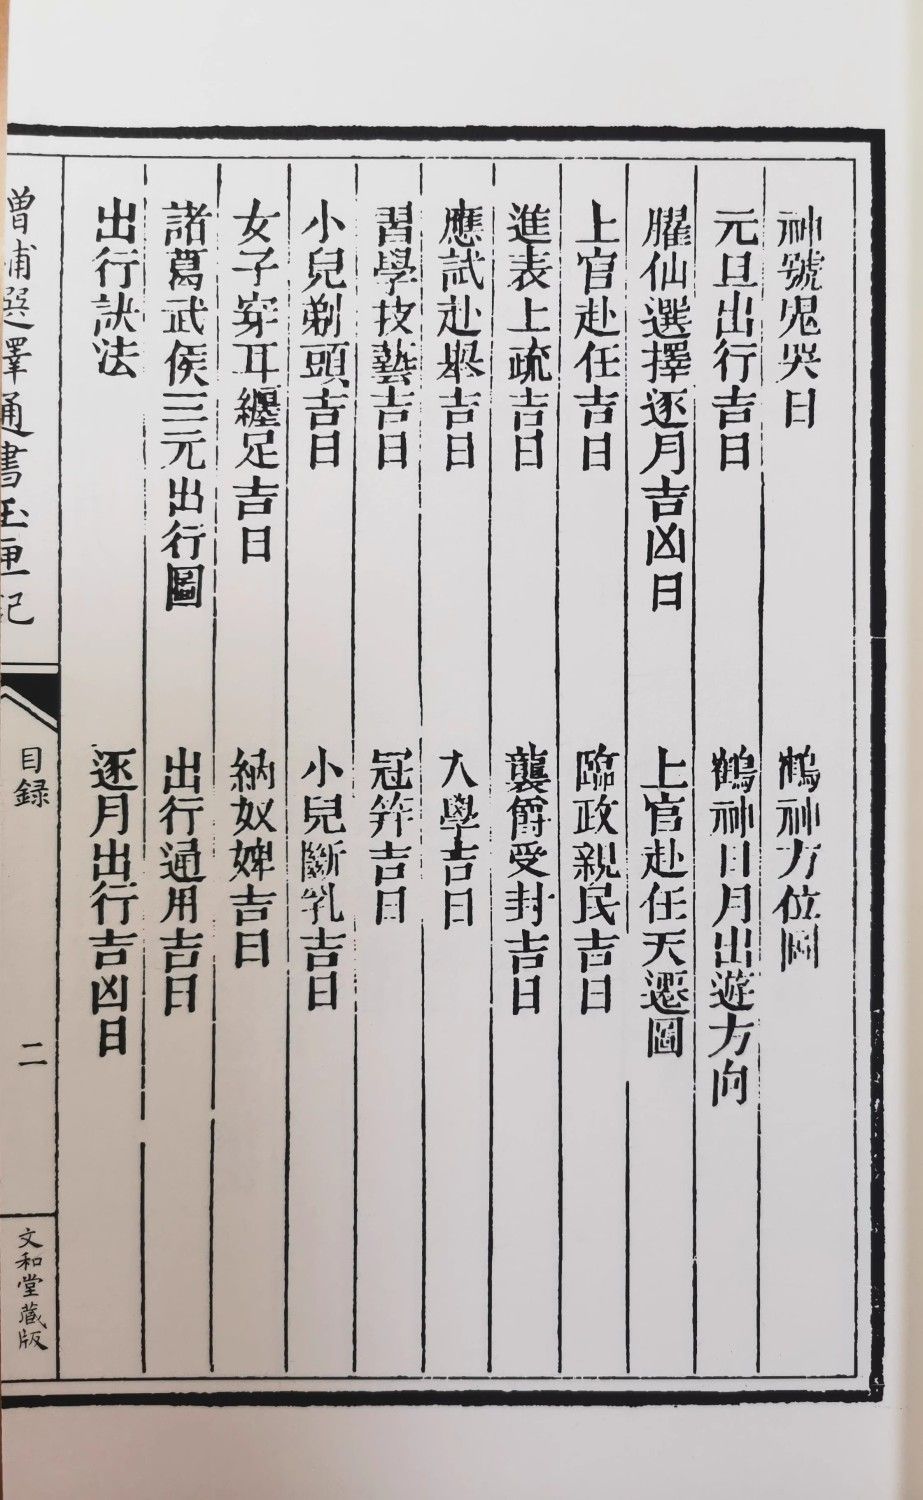 神號鬼哭日
鶴神方位圖
元旦出行吉日
鶴神日月出遊方向
臞仙選擇逐月吉凶日
上官赴任天遷圖
上官赴任吉日
臨政親民吉日
進表上疏吉日
襲爵受封吉日
應試赴舉吉日
入學吉日
習學技藝吉日
冠笄吉日
小兒剃頭吉日
小兒斷乳吉日
女子穿耳纏足吉日
納奴婢吉日
諸葛武侯三元出行圖
出行通用吉日
出行訣法
逐月出行吉凶日
增補選擇通書玉匣記
目錄
二
文和堂藏版